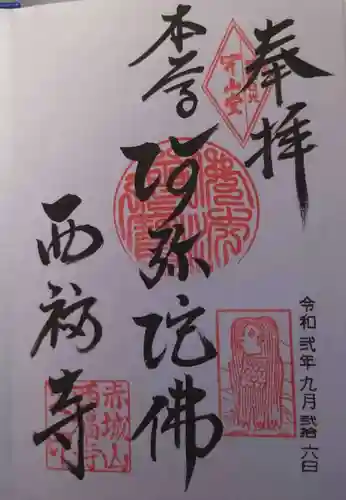 奉拝
本尊
阿弥陀佛
西福寺
令和弐年九月弐拾六日
赤城山
西福寺